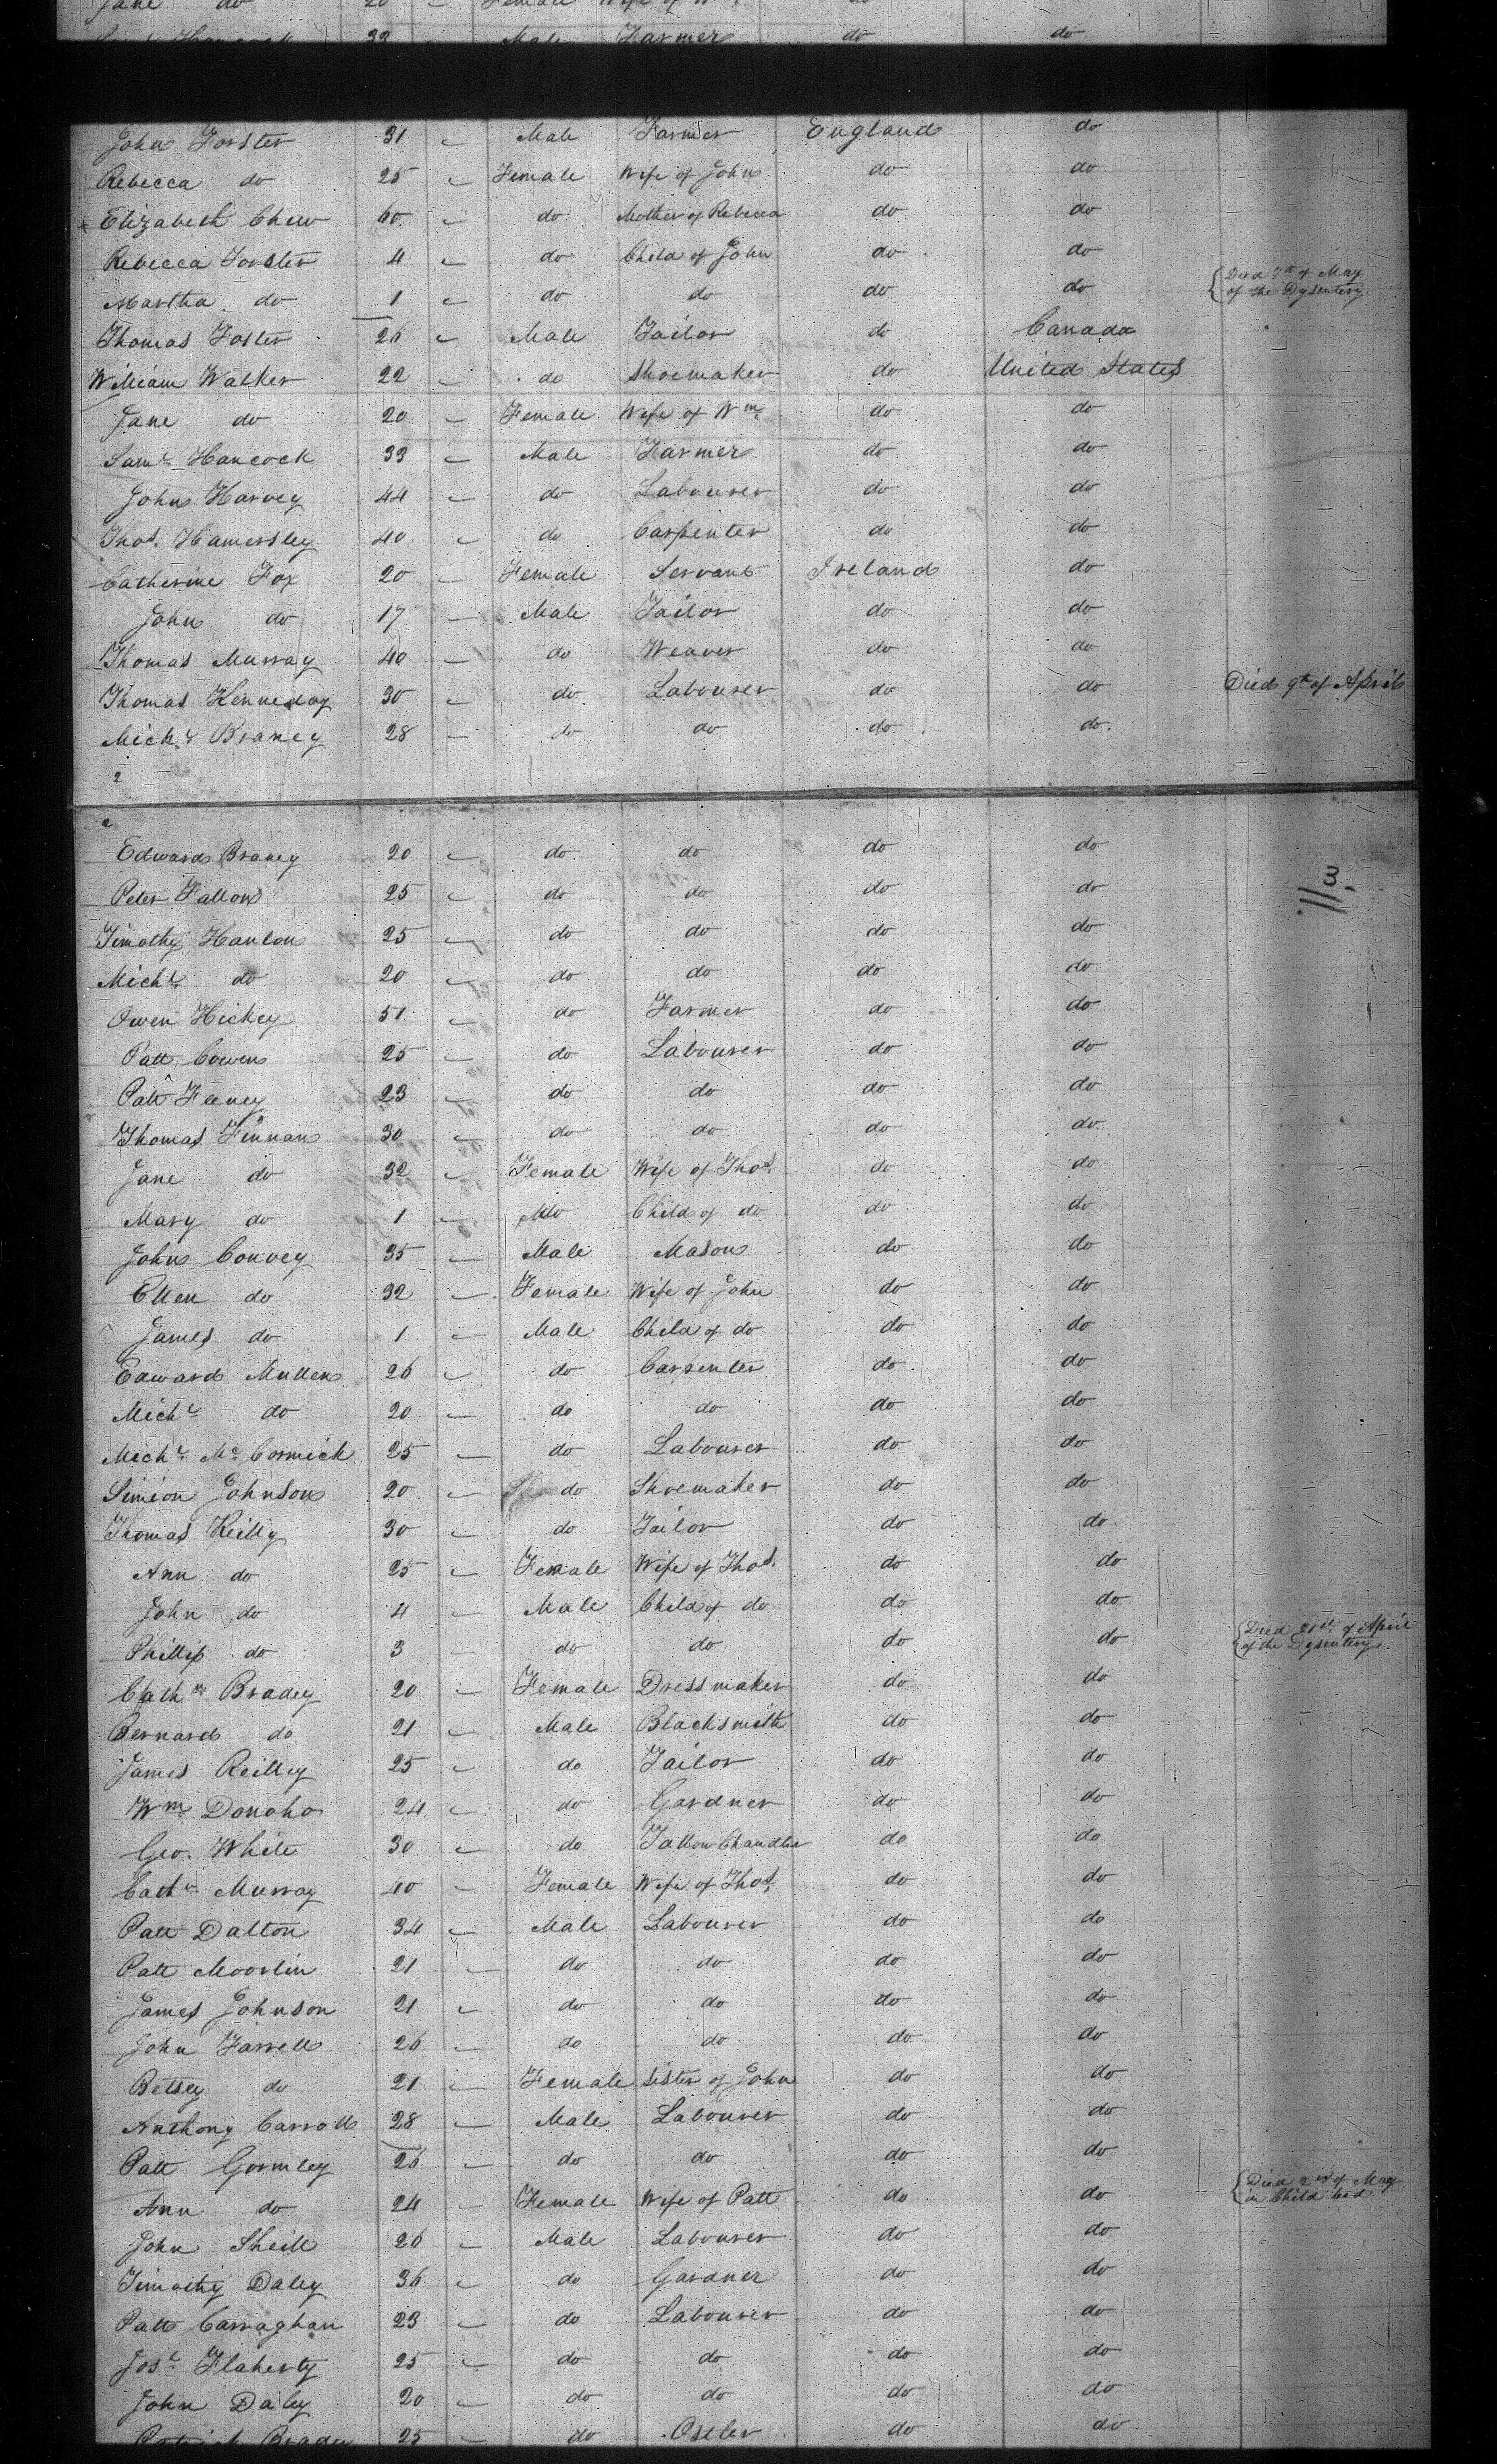 Jane do 20 Female Wife of W
Hancock 33 Male Farmer do do
John Forster 31 Male Farmer England do
Rebecca do 25 Female Wife of John do do
Elizabeth Chew 60 do Mother of Rebecca do do
Rebecca Forster 4 do Child of John do do
Martha do 1 do do do do Died 7th of May of the Dysentery
Thomas Foster 26 Male Tailor do Canada
William Walker 22 do Shoemaker do United States
Jane do 20 Female Wife of Wm do do
Saml Hancock 33 Male Farmer do do
John Harvey 44 do Labourer do do
Thos. Hamersley 40 do Carpenter do do
Catherine Fox 20 Female Servant Ireland do
John do 17 Male Tailor do do
Thomas Murray 40 do Weaver do do
Thomas Kenneday 30 do Labourer do do Died 9th of April
Michl Braney 28 do do do do
2
2
Edward Braney 20 do do do do
Peter Fallon 25 do do do do
Timothy Hanlon 25 do do do do
Michl do 20 do do do do
Owen Hickey 51 do Farmer do do
Patt Cowen 25 do Labourer do do
Patt Feeney 23 do do do do
Thomas Finnan 30 do do do do
Jane do 32 Female Wife of Thos. do do
Mary do 1 do Child of do do do
John Convey 35 Male Mason do do
Ellen do 32 Female Wife of John do do
James do 1 Male Child of do do do
Edward Mullen 26 do Carpenter do do
Michl do 20 do do do do
Michl McCormick 25 do Labourer do do
Simion Johnson 20 do Shoemaker do do
Thomas Reilly 30 do Tailor do do
Ann do 25 Female Wife of Thos. do do
John do 4 Male Child of do do do
Phillip do 3 do do do do Died 21st of April of the Dysentery
Cathne Bradey 20 Female Dressmaker do do
Bernard do 21 Male Blacksmith do do
James Reilley 25 do Tailor do do
Wm Donoho 24 do Gardner do do
Geo. White 30 do Tallow Chandler do do
Cathe Murray 40 Female Wife of Thos. do do
Patt Dalton 34 Male Labourer do do
Patt Moorlin 21 do do do do
James Johnson 21 do do do do
John Farrell 26 do do do do
Betsey do 21 Female Sister of John do do
Anthony Carroll 28 Male Labourer do do
Patt Gormley 26 do do do do
Ann do 24 Female Wife of Patt do do Died 2nd of May in Child bed
John Sheill 26 Male Labourer do do
Timothy Daley 36 do Gardner do do
Patt Carraghan 23 do Labourer do do
Josh Flaherty 25 do do do do
John Daley 20 do do do do
Patrick Brady 25 do Ostler do do